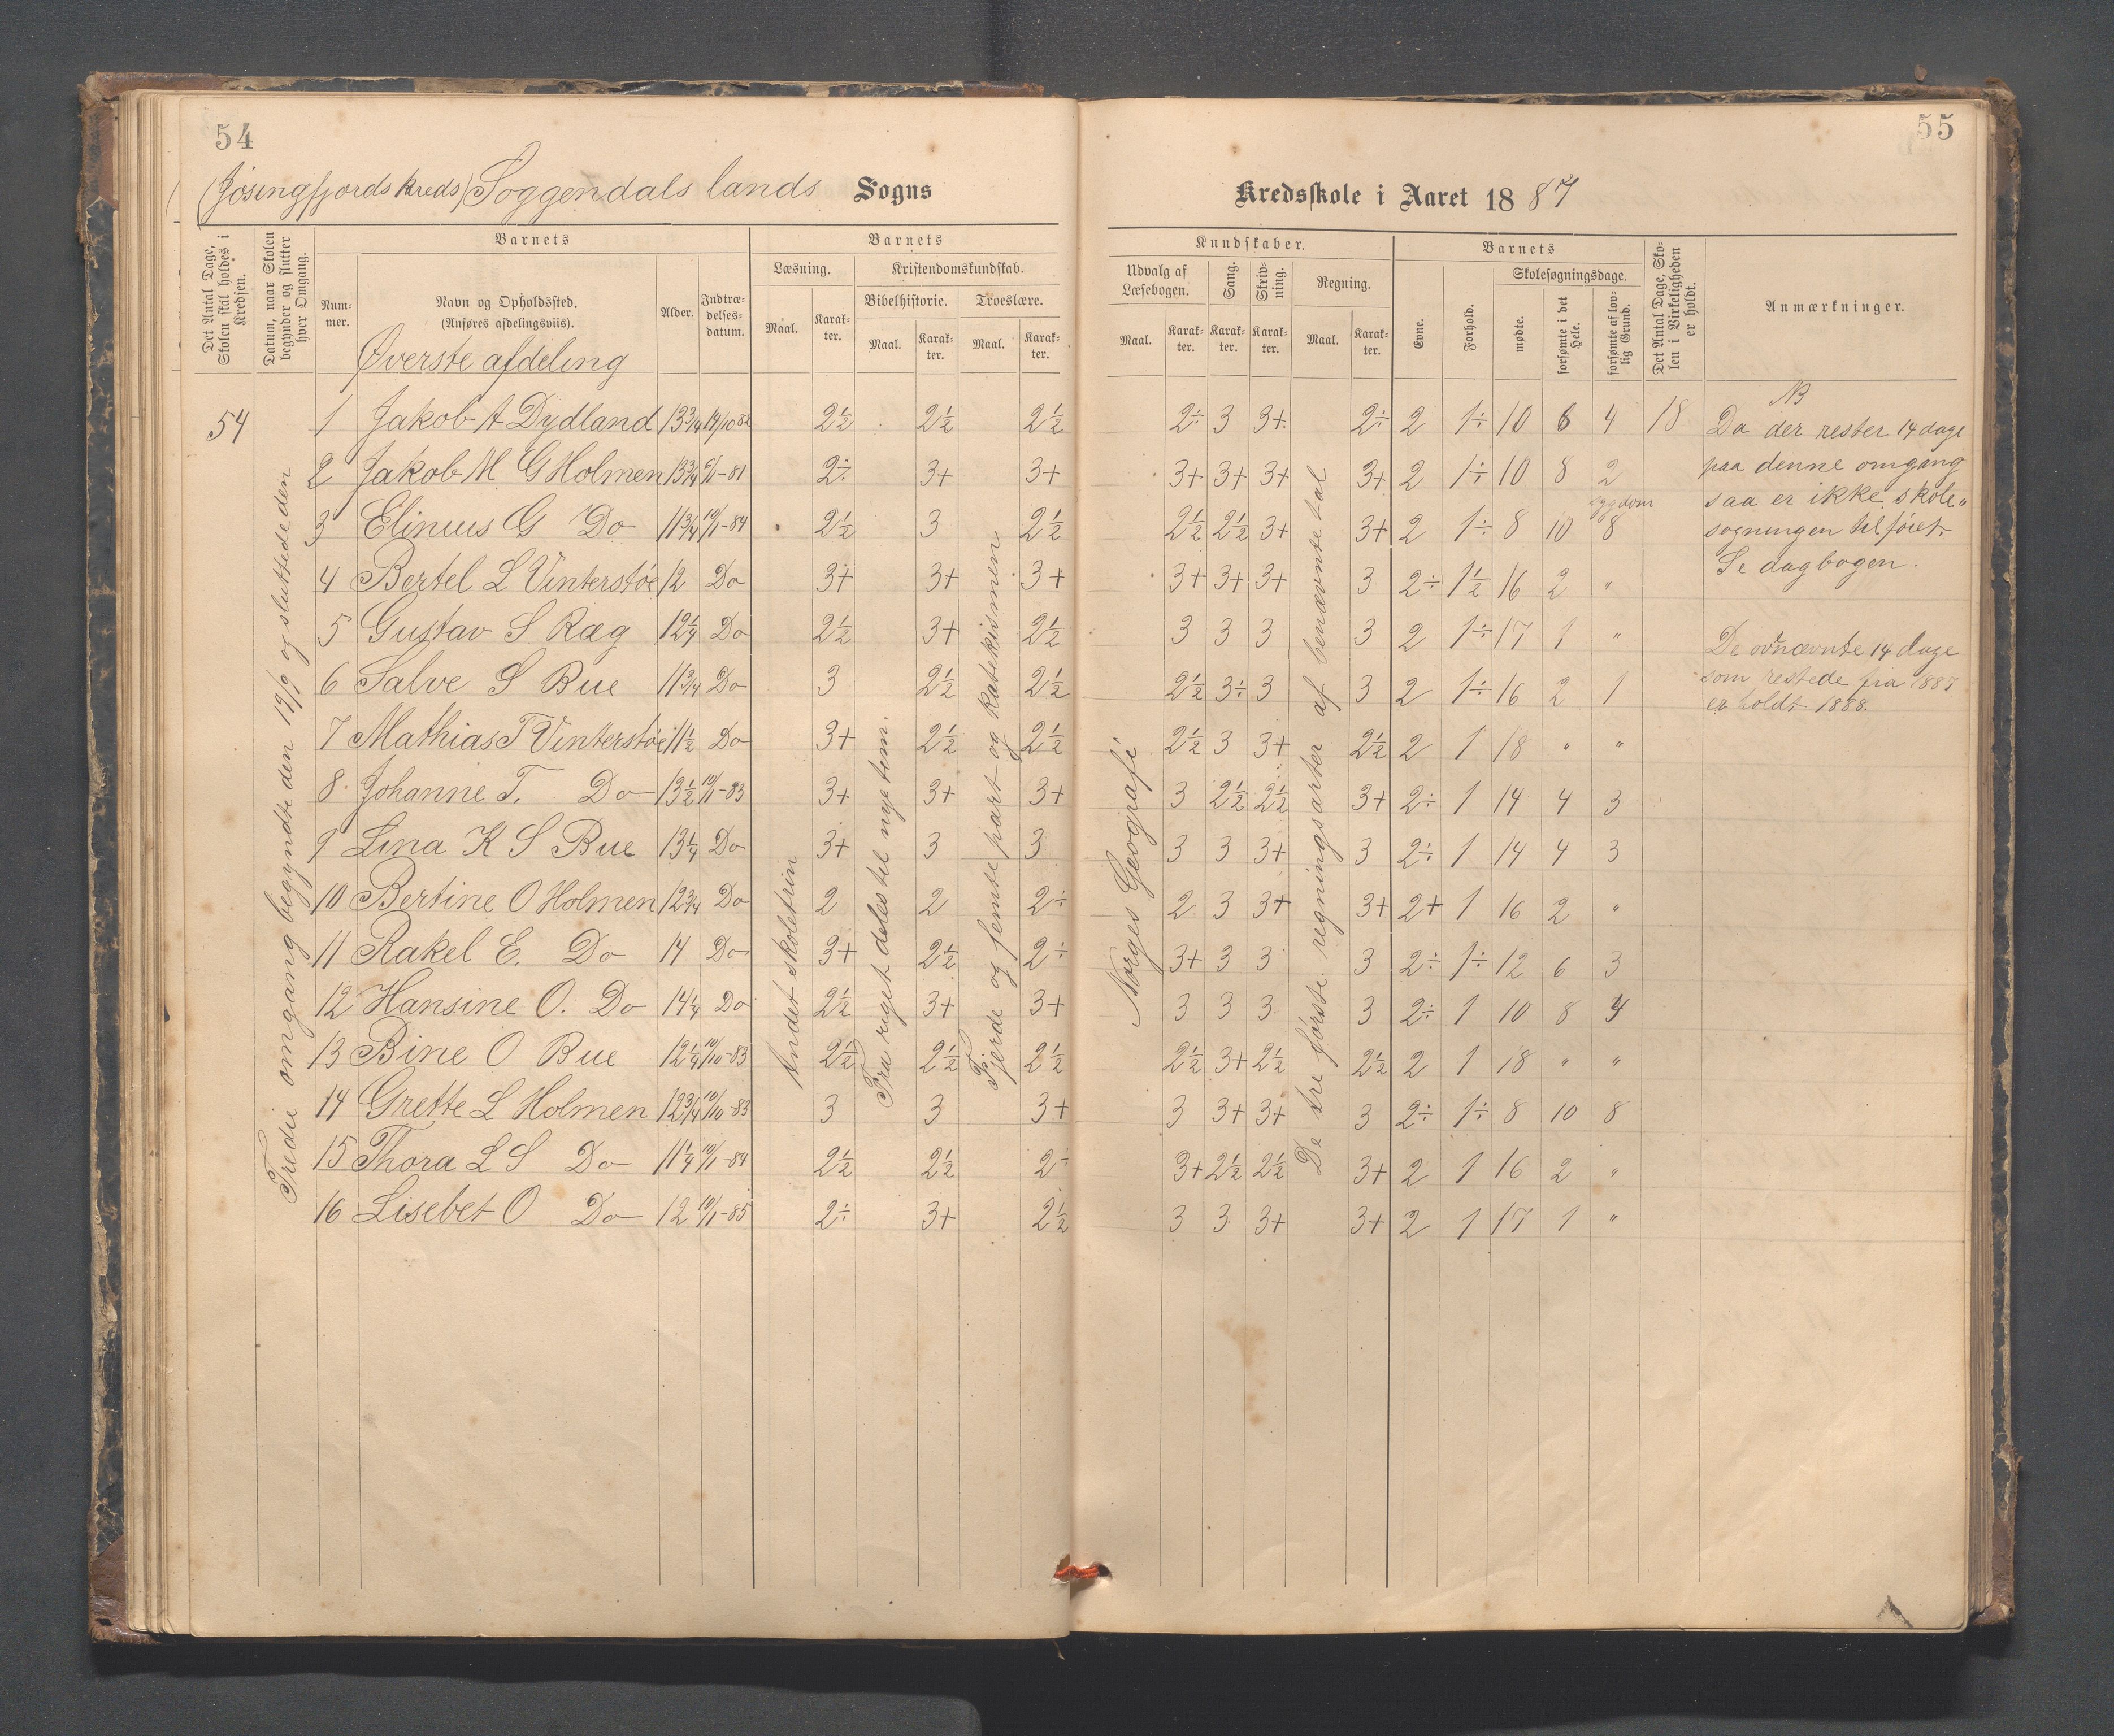 54
(Jøsingfjords kreds) Soggendals lands Sogns
Det Antal Dage, Skolen skal holdes i Kredsen.
Datum, naar Skolen begynder og slutter hver Omgang.
Barnets
Nummer.
Navn og Opholdssted.
(Anføres afdelingsviis).
Alder.
Indtrædelsesdatum.
Barnets
Læsning.
Kristendomskundskab.
Bibelhistorie.
Troeslære.
Maal.
Karakter.
Maal.
Karakter.
Maal.
Karakter.
Øverste afdeling
54
Tredie omgang begyndte den 19/9 og sluttede den
Andet skoletrin
Fra riget deles til nye tem.
Fjerde og femte part og katekismen
1 Jakob A Dydland 13 3/4 14/10 82 2½ 2½ 2½
2 Jakob M G Holmen 13 3/4 9/1-81 2÷ 3+ 3+
3 Elinius G Do 11 3/4 10/1-84 2½ 3 2½
4 Bertel L Vinterstøe 12 Do 3+ 3+ 3+
5 Gustav S. Ræg 12¼ Do 2½ 3+ 2½
6 Salve S Rue 11 3/4 Do 3 2½ 2½
7 Mathias T Vinterstøe 11½ Do 3+ 2½ 2½
8 Johanne T. Do 13½ 10/1-83 3+ 3+ 3+
9 Lina K S Rue 13¼ Do 3+ 3 3
10 Bertine O Holmen 12 3/4 Do 2 2 2÷
11 Rakel E. Do 14 Do 3+ 2½ 2÷
12 Hansine O. Do 14¼ Do 2½ 3+ 3+
13 Bine O Rue 12¼ 10/10-83 2½ 2½ 2½
14 Grette L Holmen 12 3/4 10/10-83 3 3 3+
15 Thora L S Do 11¼ 10/1-84 2½ 2½ 2÷
16 Lisebet O Do 12 10/1-85 2÷ 3+ 2½
55
Kredsskole i Aaret 1887
Kundskaber.
Udvalg af Læsebogen.
Sang.
Skrivning.
Regning.
Maal.
Karakter.
Karakter.
Karakter.
Maal.
Karakter.
Barnets
Evne.
Forhold.
Skolesøgningsdage.
mødte.
forsømte i det Hele.
forsømte af lovlig Grund.
Det Antal Dage, Skolen i Virkeligheden er holdt.
Anmærkninger.
Norges Geografi
De tre første regningsarter af benævnte tal
2÷ 3 3+ 2÷ 2 1÷ 10 8 4 18
3+ 3+ 3+ 3+ 2 1÷ 10 8 2
sygdom
2½ 2½ 3+ 3+ 2 1÷ 8 10 8
3+ 3+ 3+ 3 2÷ 1½ 16 2 "
3 3 3 3 2 1÷ 17 1 "
2½ 3÷ 3 3 2 1÷ 16 2 1
2½ 3 3+ 2½ 2 1 18 " "
3 2½ 2½ 3+ 2÷ 1 14 4 3
3 3 3+ 3 2÷ 1 14 4 3
2 3 3+ 3+ 2+ 1 16 2 "
3+ 3 3 3 2÷ 1÷ 12 6 3
3 3 3 3 2÷ 1 10 8 4
2½ 3+ 2½ 2½ 2 1 18 " "
3 3+ 3+ 3 2÷ 1÷ 8 10 8
3+ 2½ 2½ 3+ 2 1 16 2 "
3 3 3+ 3+ 2 1 17 1 "
NB
Da der rester 14 dage
paa denne omgang
saa er ikke skole„
søgningen tilføiet.
Se dagbogen.
De ovnævnte 14 dage
som restede fra 1887
er holdt 1888.